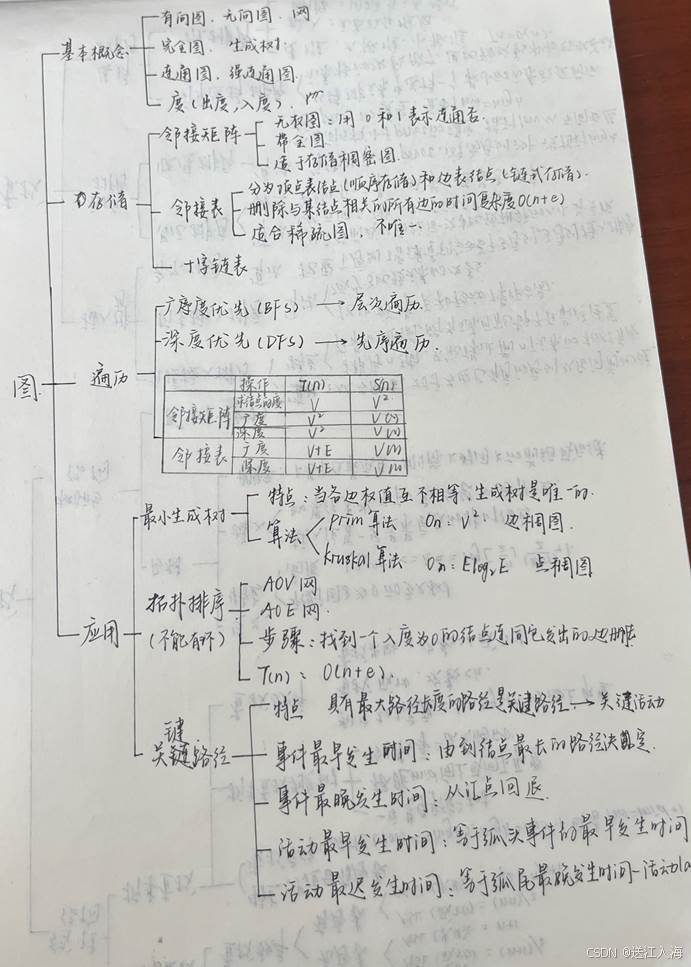 有向图、无向图、网
基本概念
完全图、生成树
连通图、强连通图
度(出度,入度).
邻接矩阵
无权图:用0和1表示连通否
带全图
适于存储稠密图
存储
邻接表
分为顶点表结点(顺序存储)和边表结点(链式存储).
删除与某结点相关的所有边的时间复杂度O(n+e)
适合稀疏图,不唯一.
十字链表
广度优先(BFS) → 层次遍历.
深度优先(DFS) → 先序遍历.
图
遍历
操作 T(n) S(n)
邻接矩阵 求结点的度 V V²
广度 V² V(n)
深度 V² V(n)
邻接表 广度 V+E V(n)
深度 V+E V(n)
最小生成树
特点:当各边权值互不相等,生成树是唯一的.
算法
Prim算法 On:V²: 边稠图.
kruskal算法 On:Elog₂E 点稠图
应用
拓扑排序
(不能有环)
AOV网
AOE网.
步骤:找到一个入度为0的结点连同它发出的边删去
T(n): O(n+e).
键
关键路径
特点 具有最大路径长度的路径是关键路径. → 关键活动
事件最早发生时间:由到结点最长的路径决定.
事件最晚发生时间:从汇点回退.
活动最早发生时间:等于弧头事件的最早发生时间
活动最迟发生时间:等于弧尾最晚发生时间-活动
CSDN @送江入海